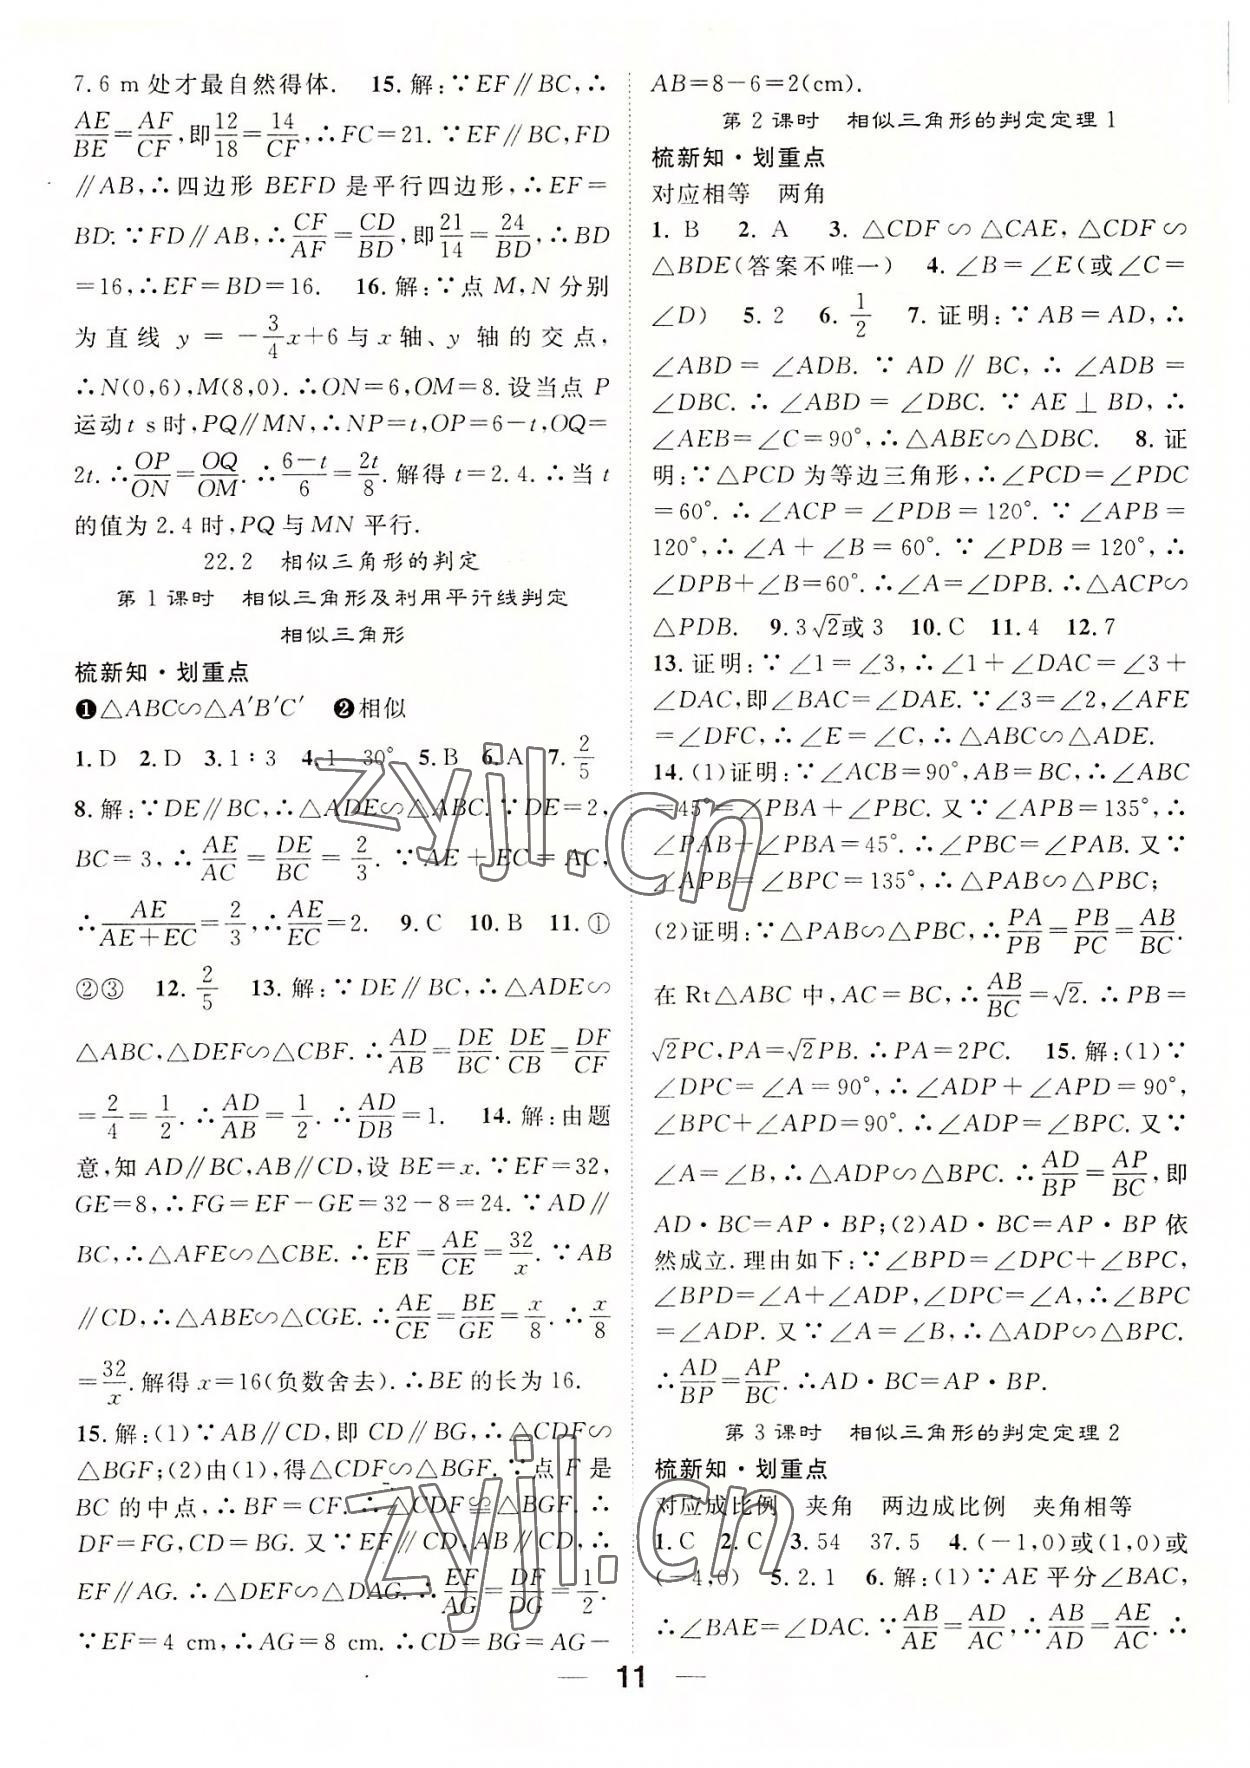 7.6 m 处才最自然得体. 15.解:∵EF∥BC,∴
AE/BE=AF/CF,即12/18=14/CF,∴FC=21.∵EF∥BC,FD
∥AB,∴四边形 BEFD 是平行四边形,∴EF=
BD.∵FD∥AB,∴CF/AF=CD/BD,即21/14=24/BD,∴BD
=16,∴EF=BD=16. 16.解:∵点 M,N 分别
为直线 y=-3/4x+6与x轴、y 轴的交点,
∴N(0,6),M(8,0).∴ON=6,OM=8.设当点 P
运动t s时,PQ∥MN,∴NP=t,OP=6-t,OQ=
2t.∴OP/ON=OQ/OM.∴6-t/6=2t/8.解得 t=2.4.∴当 t
的值为2.4时,PQ与MN平行.
22.2 相似三角形的判定
第1课时 相似三角形及利用平行线判定
相似三角形
梳新知·划重点
❶△ABC∽△A′B′C′ ❷相似
1.D 2.D 3.1∶3 4.1 30° 5.B 6.A 7.2/5
8.解:∵DE∥BC,∴△ADE∽△ABC.∵DE=2,
BC=3,∴AE/AC=DE/BC=2/3.∵AE+EC=AC,
∴AE/AE+EC=2/3,∴AE/EC=2. 9.C 10.B 11.①
②③ 12.2/5 13.解:∵DE∥BC,∴△ADE∽
△ABC,△DEF∽△CBF.∴AD/AB=DE/BC.DE/CB=DF/CF
=2/4=1/2.∴AD/AB=1/2.∴AD/DB=1. 14.解:由题
意,知AD∥BC,AB∥CD,设BE=x.∵EF=32,
GE=8,∴FG=EF-GE=32-8=24.∵AD∥
BC,∴△AFE∽△CBE.∴EF/EB=AE/CE=32/x.∵AB
∥CD,∴△ABE∽△CGE.∴AE/CE=BE/GE=x/8.∴x/8
=32/x.解得x=16(负数舍去).∴BE的长为16.
15.解:(1)∵AB∥CD,即CD∥BG,∴△CDF∽
△BGF;(2)由(1),得△CDF∽△BGF.∵点 F 是
BC 的中点,∴BF=CF.∴△CDF≌△BGF.∴
DF=FG,CD=BG.又∵EF∥CD,AB∥CD,∴
EF∥AG.∴△DEF∽△DAG.∴EF/AG=DF/DG=1/2.
∵EF=4 cm,∴AG=8 cm.∴CD=BG=AG-
AB=8-6=2(cm).
第2课时 相似三角形的判定定理1
梳新知·划重点
对应相等 两角
1.B 2.A 3.△CDF∽△CAE,△CDF∽
△BDE(答案不唯一) 4.∠B=∠E(或∠C=
∠D) 5.2 6.1/2 7.证明:∵AB=AD,∴
∠ABD=∠ADB.∵AD∥BC,∴∠ADB=
∠DBC.∴∠ABD=∠DBC.∵AE⊥BD,∴
∠AEB=∠C=90°,∴△ABE∽△DBC. 8.证
明:∵△PCD为等边三角形,∴∠PCD=∠PDC
=60°.∴∠ACP=∠PDB=120°.∵∠APB=
120°,∴∠A+∠B=60°.∵∠PDB=120°,∴
∠DPB+∠B=60°.∴∠A=∠DPB.∴△ACP∽
△PDB. 9.3√2或3 10.C 11.4 12.7
13.证明:∵∠1=∠3,∴∠1+∠DAC=∠3+
∠DAC,即∠BAC=∠DAE.∵∠3=∠2,∠AFE
=∠DFC,∴∠E=∠C,∴△ABC∽△ADE.
14.(1)证明:∵∠ACB=90°,AB=BC,∴∠ABC
=45°=∠PBA+∠PBC.又∵∠APB=135°,∴
∠PAB+∠PBA=45°.∴∠PBC=∠PAB.又∵
∠APB=∠BPC=135°,∴△PAB∽△PBC;
(2)证明:∵△PAB∽△PBC,∴PA/PB=PB/PC=AB/BC.
在Rt△ABC中,AC=BC,∴AB/BC=√2.∴PB=
√2PC,PA=√2PB.∴PA=2PC. 15.解:(1)∵
∠DPC=∠A=90°,∴∠ADP+∠APD=90°,
∠BPC+∠APD=90°.∴∠ADP=∠BPC.又∵
∠A=∠B,∴△ADP∽△BPC.∴AD/BP=AP/BC,即
AD·BC=AP·BP;(2)AD·BC=AP·BP依
然成立.理由如下:∵∠BPD=∠DPC+∠BPC,
∠BPD=∠A+∠ADP,∠DPC=∠A,∴∠BPC
=∠ADP.又∵∠A=∠B,∴△ADP∽△BPC.
∴AD/BP=AP/BC.∴AD·BC=AP·BP.
第3课时 相似三角形的判定定理2
梳新知·划重点
对应成比例 夹角 两边成比例 夹角相等
1.C 2.C 3.54 37.5 4.(-1,0)或(1,0)或
(-4,0) 5.2.1 6.解:(1)∵AE平分∠BAC,
∴∠BAE=∠DAC.∵AB/AE=AD/AC,∴AB/AD=AE/AC.∴
— 11 —
zyjl.cn
zyjl.cn